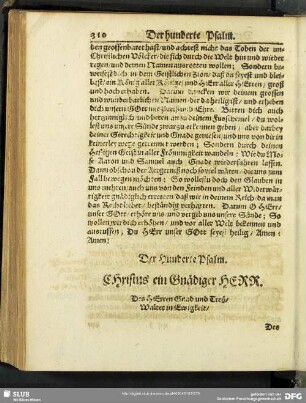 310 Der hunderte Psalm.
den grossen hast und achtest nicht das Toben der un-
Christlichen Völcker die sich durch die Welt hin und wieder
regen und deinen Namen außrotten wollen; Sondern
in dem Geistlichen Zion, daß du seyest und blei-
best ein König aller Könige und HErr aller HErren, groß
und hoch erhaben. Darum dancken wir deinem grossen
und wunderbarlichen Namen der da heilig ist, und erheben
dich unsern GOtt Bitten dich auch
hertzinniglich und beten an zu deinem Fußschemel: du wol-
lest uns unsere Sünde zwar zu erkennen geben; aber darbey
deiner Gerechtigkeit und Gnade und uns von dir
werden; Sondern durch deinen
Heiligen Geist in aller Frömmigkeit wandeln: Wie du Mo-
se Aaron und Samuel auch Gnade wiederfahren lassen.
Dann obschon der noch so viel wären, die uns zum
Fall möchten: So wollest du doch den Glauben in
uns mehren, auch uns von den Feinden und aller Widerwär-
tigkeit gnädiglich erretten, daß wir in deinem Reich da man
das Recht liebet beständig verharren. Darum O HErr,
unser GOtt, erhöre uns und vergib uns unsere Sünde; So
wollen wir dich erhöhen, und vor aller Welt bekennen und
ausruffen, Du HErr unser GOtt seyest heilig, Amen;
Amen!
Der Hunderte Psalm.
CHristus ein Gnädiger HERR.
Des HErren Gnad und Treü,
Waltet in Ewigkeit,
Des
SLUB
DFG